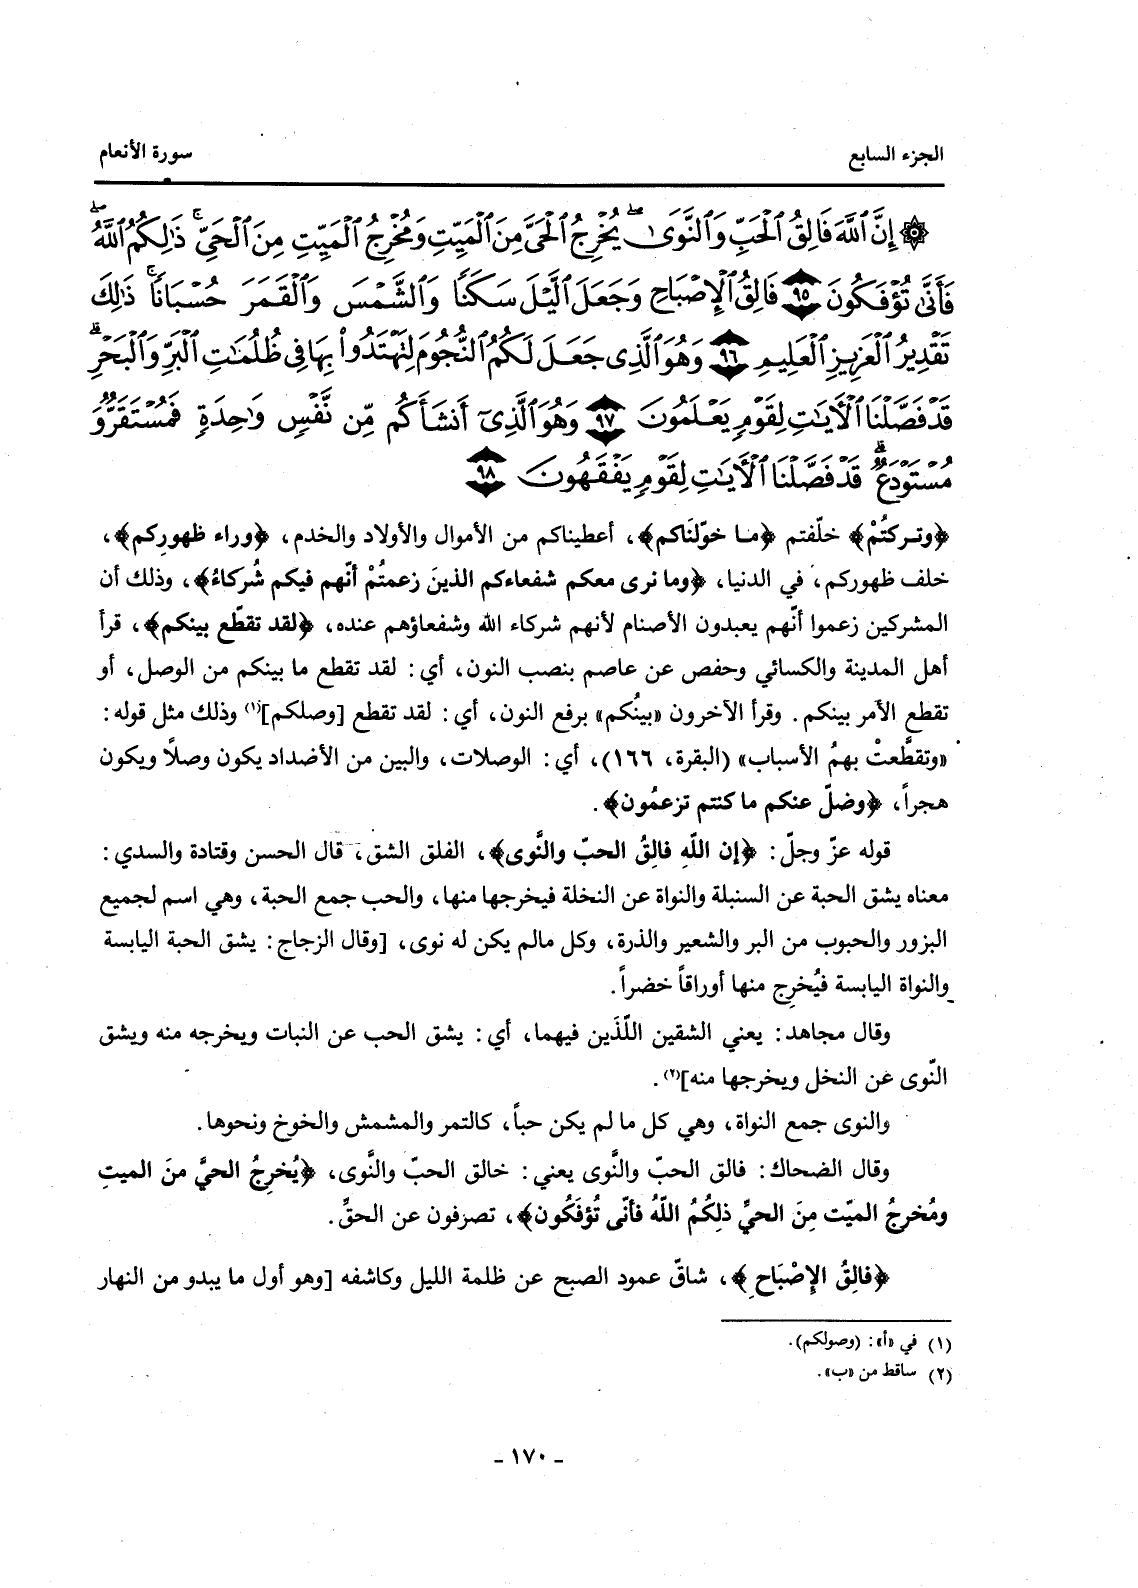 الجزء السابع
سورة الأنعام
۞ إِنَّ ٱللَّهَ فَالِقُ ٱلْحَبِّ وَٱلنَّوَىٰ ۖ يُخْرِجُ ٱلْحَىَّ مِنَ ٱلْمَيِّتِ وَمُخْرِجُ ٱلْمَيِّتِ مِنَ ٱلْحَىِّ ۚ ذَٰلِكُمُ ٱللَّهُ ۖ
فَأَنَّىٰ تُؤْفَكُونَ ٩٥ فَالِقُ ٱلْإِصْبَاحِ وَجَعَلَ ٱلَّيْلَ سَكَنًا وَٱلشَّمْسَ وَٱلْقَمَرَ حُسْبَانًا ۚ ذَٰلِكَ
تَقْدِيرُ ٱلْعَزِيزِ ٱلْعَلِيمِ ٩٦ وَهُوَ ٱلَّذِى جَعَلَ لَكُمُ ٱلنُّجُومَ لِتَهْتَدُوا۟ بِهَا فِى ظُلُمَٰتِ ٱلْبَرِّ وَٱلْبَحْرِ ۗ
قَدْ فَصَّلْنَا ٱلْآيَٰتِ لِقَوْمٍ يَعْلَمُونَ ٩٧ وَهُوَ ٱلَّذِىٓ أَنشَأَكُم مِّن نَّفْسٍ وَٰحِدَةٍ فَمُسْتَقَرٌّ وَ
مُسْتَوْدَعٌ ۗ قَدْ فَصَّلْنَا ٱلْآيَٰتِ لِقَوْمٍ يَفْقَهُونَ ٩٨
﴿وتركتُمْ﴾ خلّفتم ﴿ما خوّلنَاكم﴾، أعطيناكم من الأموال والأولاد والخدم، ﴿وراء ظهورِكم﴾،
خلف ظهوركم، في الدنيا، ﴿وما نرى معكم شفعاءكم الذينَ زعمتُمْ أنّهم فيكم شُركاءُ﴾، وذلك أن
المشركين زعموا أنّهم يعبدون الأصنام لأنهم شركاء الله وشفعاؤهم عنده، ﴿لقد تقطّع بينكم﴾، قرأ
أهل المدينة والكسائي وحفص عن عاصم بنصب النون، أي: لقد تقطع ما بينكم من الوصل، أو
تقطع الأمر بينكم. وقرأ الآخرون «بينُكم» برفع النون، أي: لقد تقطع [وصلكم](١) وذلك مثل قوله:
«وتقطَّعتْ بهمُ الأسباب» (البقرة، ١٦٦)، أي: الوصلات، والبين من الأضداد يكون وصلاً ويكون
هجراً، ﴿وضلّ عنكم ما كنتم تزعمُون﴾.
قوله عزّ وجلّ: ﴿إن اللّهِ فالِقُ الحبّ والنَّوى﴾، الفلق الشق، قال الحسن وقتادة والسدي:
معناه يشق الحبة عن السنبلة والنواة عن النخلة فيخرجها منها، والحب جمع الحبة، وهي اسم لجميع
البزور والحبوب من البر والشعير والذرة، وكل مالم يكن له نوى، [وقال الزجاج: يشق الحبة اليابسة
والنواة اليابسة فيُخرِج منها أوراقاً خضراً.
وقال مجاهد: يعني الشقين اللّذَين فيهما، أي: يشق الحب عن النبات ويخرجه منه ويشق
النّوى عن النخل ويخرجها منه](٢).
والنوى جمع النواة، وهي كل ما لم يكن حباً، كالتمر والمشمش والخوخ ونحوها.
وقال الضحاك: فالق الحبّ والنَّوى يعني: خالق الحبّ والنَّوى، ﴿يُخرِجُ الحيَّ منَ الميتِ
ومُخرجُ الميّت مِنَ الحيِّ ذلِكُمُ اللّهُ فأنّى تُؤفَكُون﴾، تصرفون عن الحقِّ.
﴿فالِقُ الإصْبَاحِ﴾، شاقّ عمود الصبح عن ظلمة الليل وكاشفه [وهو أول ما يبدو من النهار
(١) في «أ»: (وصولكم).
(٢) ساقط من «ب».
- ١٧٠ -